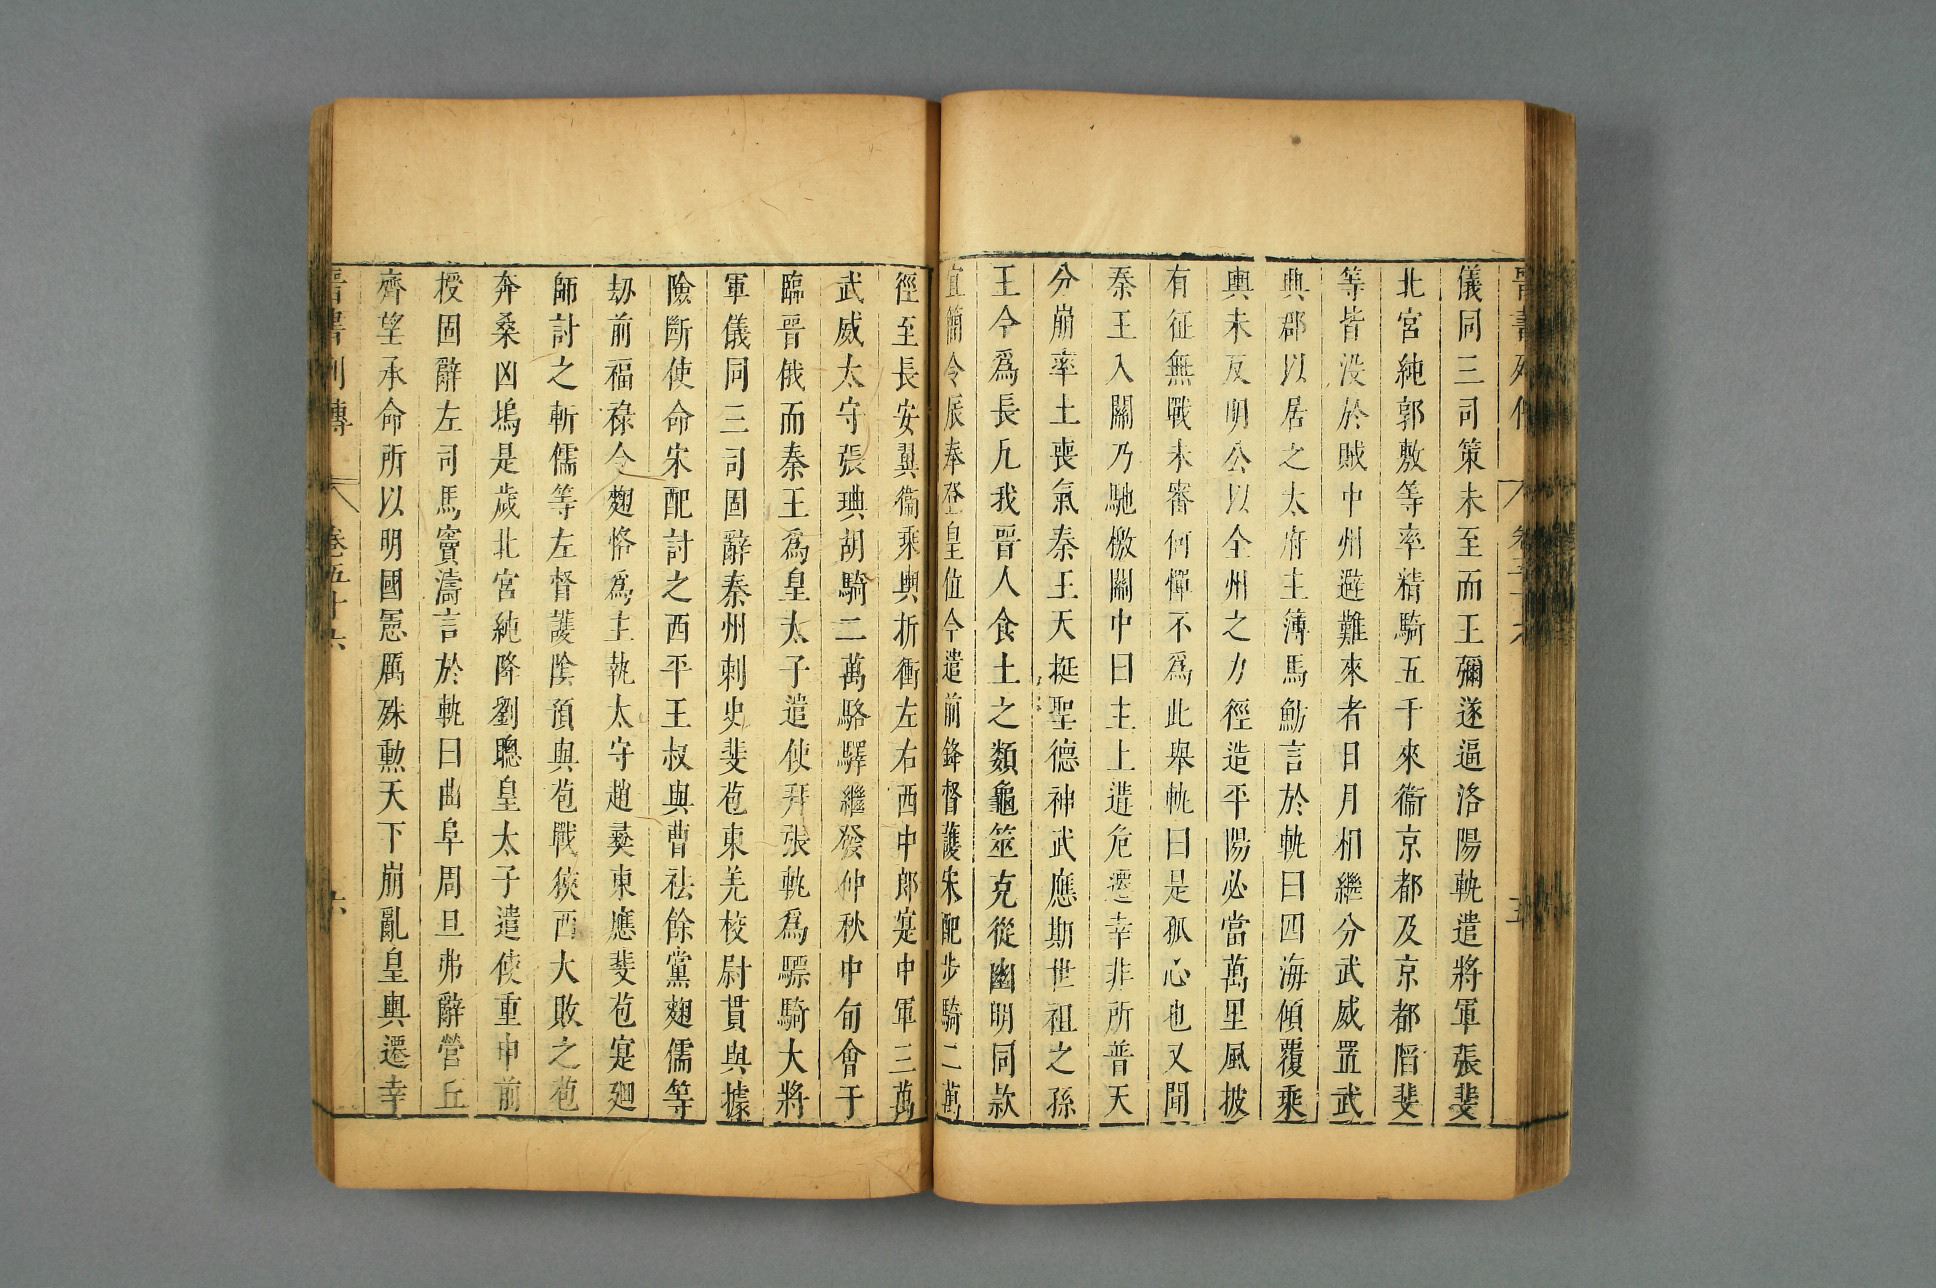 晉書列傳 卷五十六 五
儀同三司策未至而王彌遂逼洛陽軌遣將軍張斐
北宮純郭敷等率精騎五千來衞京都及京都陷斐
等皆没於賊中州避難來者日月相繼分武威置武
興郡以居之太府主簿馬魴言於軌曰四海傾覆乘
輿未反明公以全州之力徑造平陽必當萬里風披
有征無戰未審何憚不爲此舉軌曰是孤心也又聞
秦王入關乃馳檄關中曰主上遘危遷幸非所普天
分崩率土喪氣秦王天挺聖德神武應期世祖之孫
王今爲長凢我晉人食土之類龜筮克從幽明同款
宜簡令辰奉登皇位今遣前鋒督護宋配步騎二萬
徑至長安翼衞乘輿折衝左右西中郎寔中軍三萬
武威太守張琠胡騎二萬駱驛繼發仲秋中旬會于
臨晉俄而秦王爲皇太子遣使拜張軌爲驃騎大將
軍儀同三司固辭秦州刺史斐苞東羌校尉貫與據
險斷使命宋配討之西平王叔與曹袪餘黨麴儒等
刼前福祿令麴恪爲主執太守趙彞東應斐苞寔廻
師討之斬儒等左督護陰預與苞戰狹西大敗之苞
奔桑凶塢是歲北宮純降劉聰皇太子遣使重申前
授固辭左司馬竇濤言於軌曰曲阜周旦弗辭營丘
齊望承命所以明國憲厲殊勳天下崩亂皇輿遷幸
晉書列傳 卷五十六 六